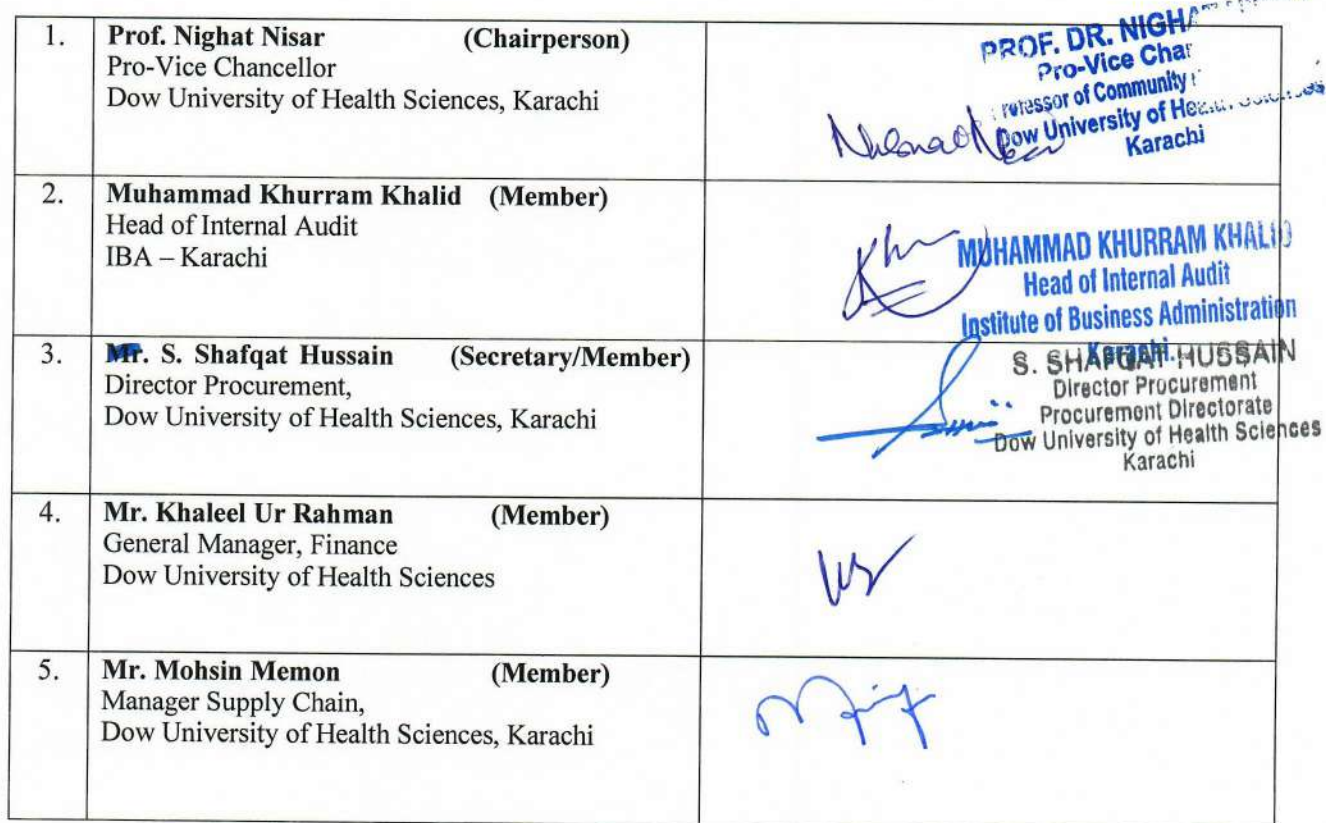 1. Prof. Nighat Nisar (Chairperson)
Pro-Vice Chancellor
Dow University of Health Sciences, Karachi
PROF. DR.
Pro-Vice
of Community
Dow University of
Karachi
2. Muhammad Khurram Khalid (Member)
Head of Internal Audit
IBA – Karachi
MUHAMMAD KHURRAM KHALID
Head of Internal Audit
Institute of Business Administration
Karachi.
3. Mr. S. Shafqat Hussain (Secretary/Member)
Director Procurement,
Dow University of Health Sciences, Karachi
S. SHAFQAT HUSSAIN
Director Procurement
Procurement Directorate
Dow University of Health Sciences
Karachi
4. Mr. Khaleel Ur Rahman (Member)
General Manager, Finance
Dow University of Health Sciences
5. Mr. Mohsin Memon (Member)
Manager Supply Chain,
Dow University of Health Sciences, Karachi